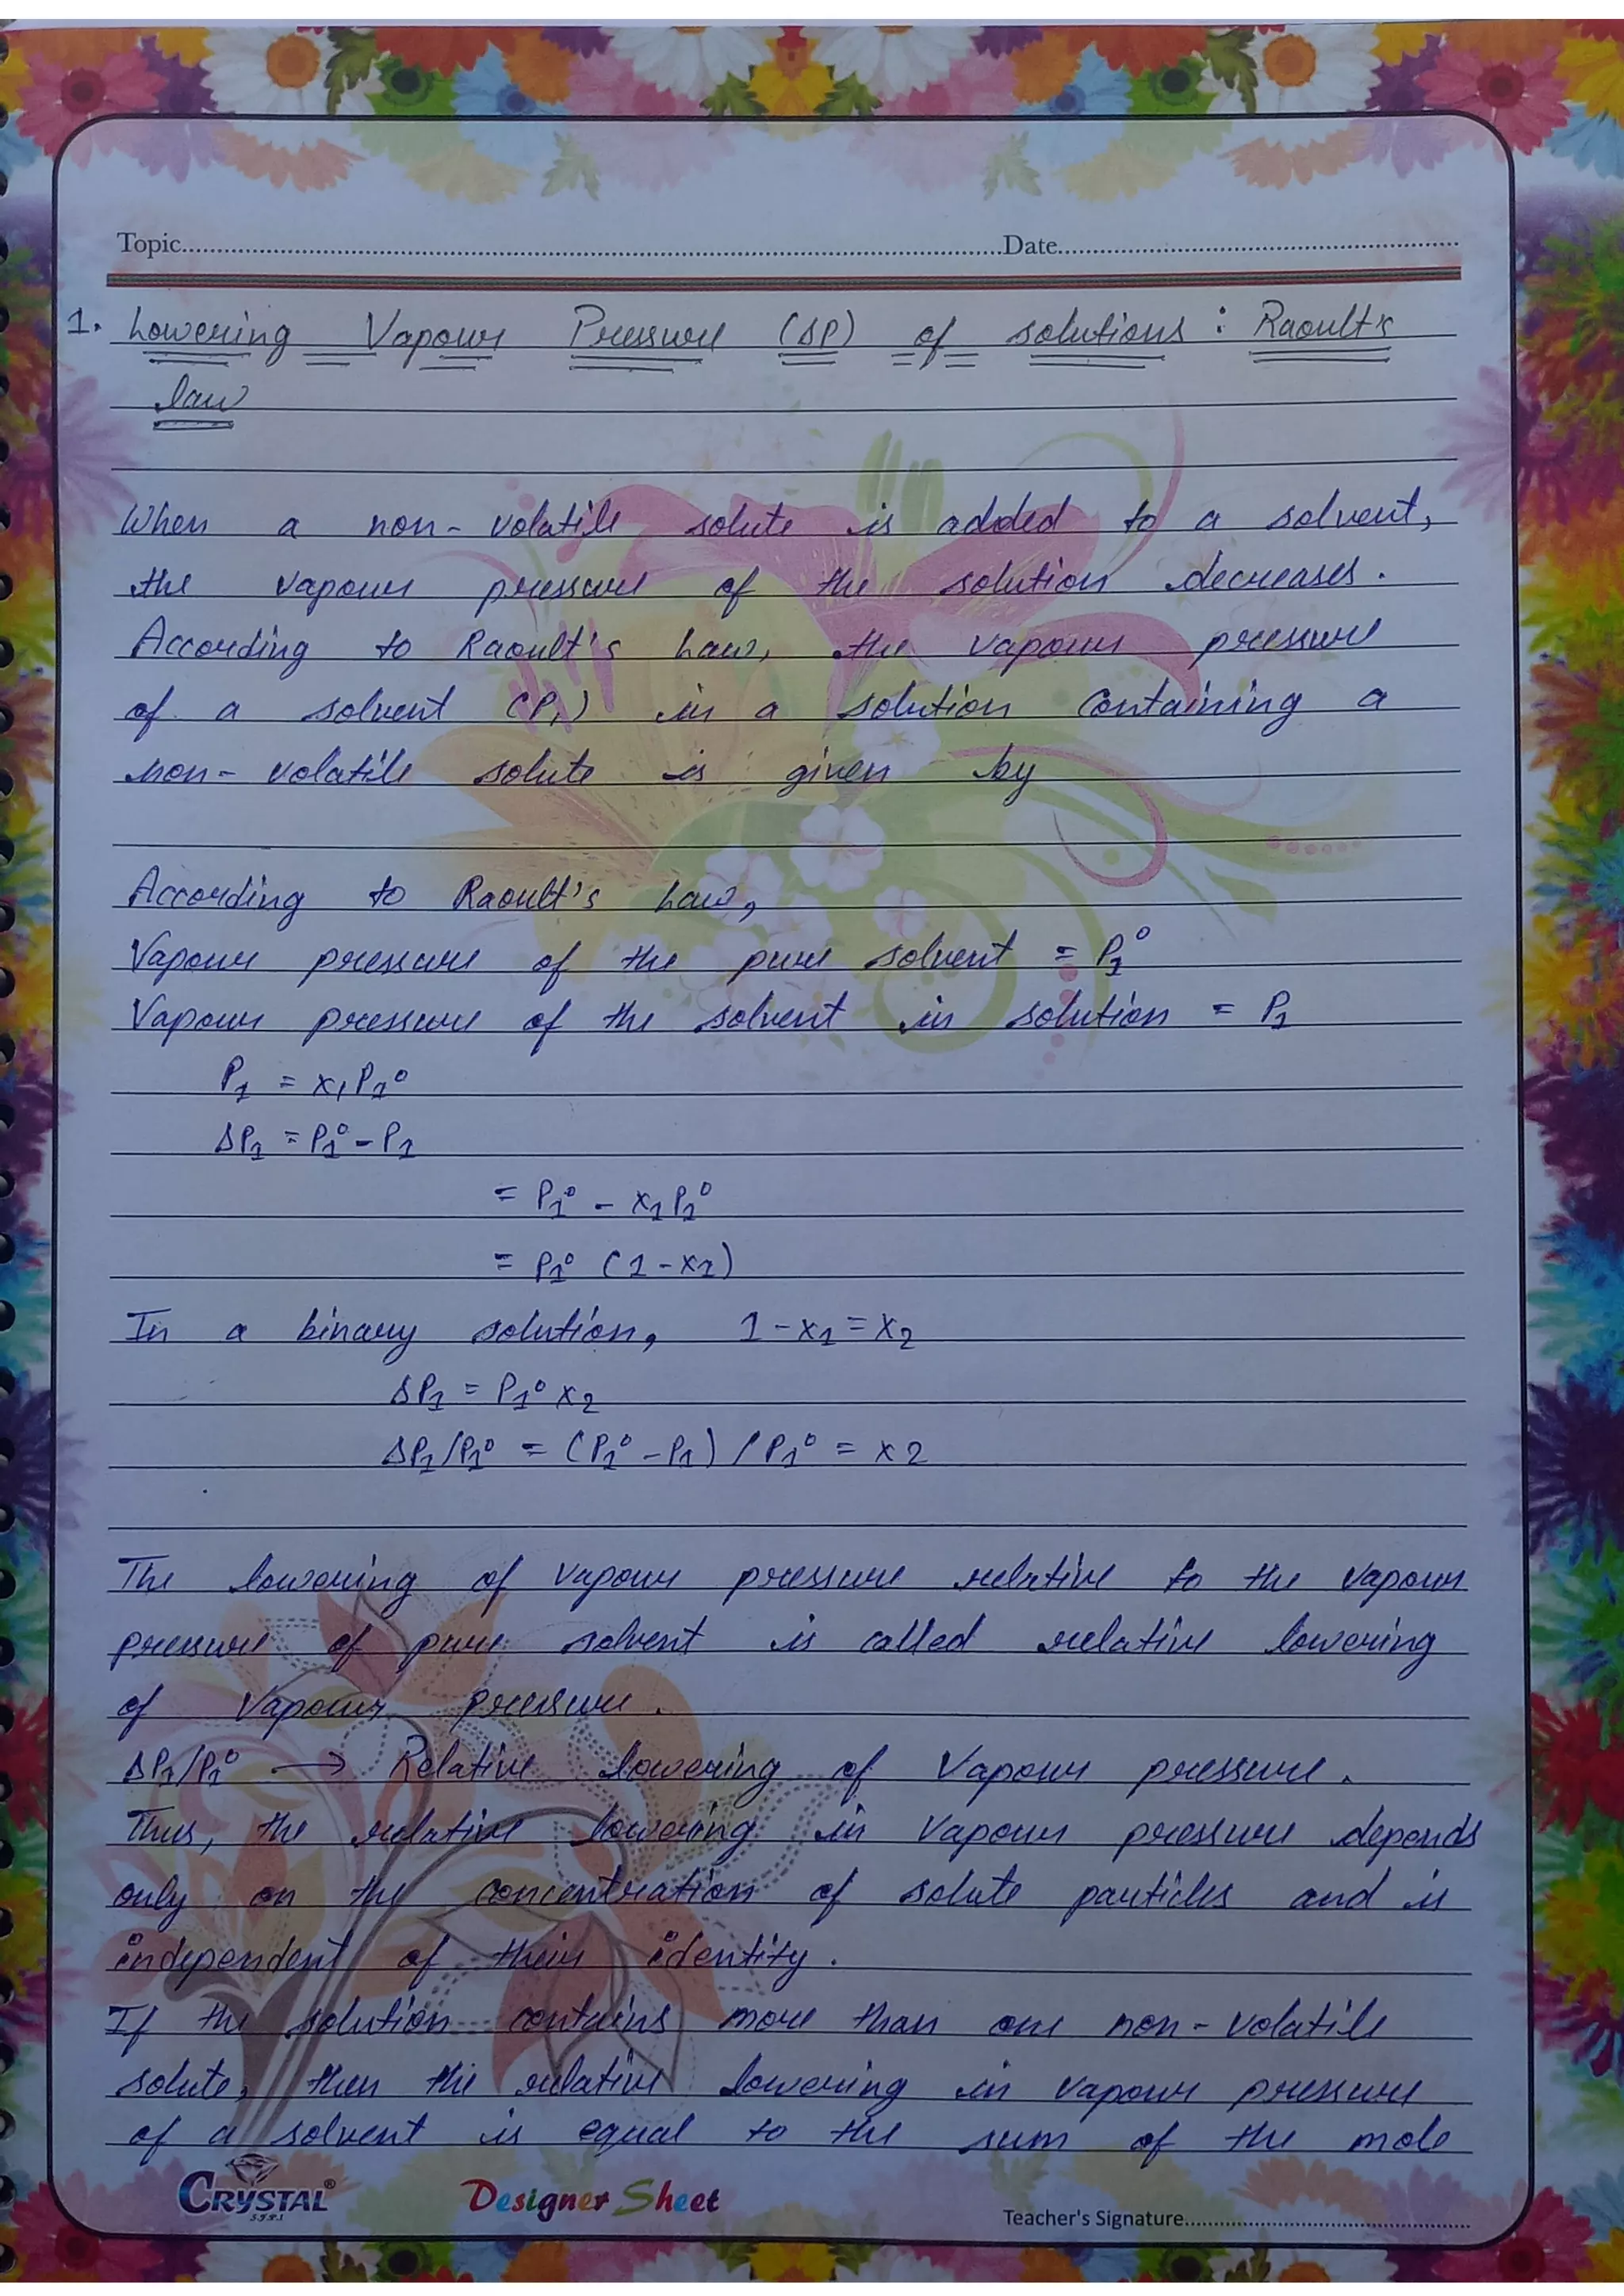 Topic..........Date..........
1. Lowering Vapour Pressure (ΔP) of solutions : Raoult's
law
When a non-volatile solute is added to a solvent,
the vapour pressure of the solution decreases.
According to Raoult's Law, the vapour pressure
of a solvent (P₁) in a solution containing a
non-volatile solute is given by
According to Raoult's Law,
Vapour pressure of the pure solvent = P₁⁰
Vapour pressure of the solvent in solution = P₁
P₁ = x₁P₁⁰
ΔP₁ = P₁⁰ - P₁
= P₁⁰ - x₁P₁⁰
= P₁⁰ (1-x₁)
In a binary solution, 1-x₁=x₂
ΔP₁ = P₁⁰ x₂
ΔP₁/P₁⁰ = (P₁⁰ - P₁) / P₁⁰ = x2
The lowering of vapour pressure relative to the vapour
pressure of pure solvent is called relative lowering
of vapour pressure.
ΔP₁/P₁⁰ → Relative lowering of Vapour pressure.
Thus, the relative lowering in vapour pressure depends
only on the concentration of solute particles and is
independent of their identity.
If the solution contains more than one non-volatile
solute, then the relative lowering in vapour pressure
of a solvent is equal to the sum of the mole
CRYSTAL® Designer Sheet
Teacher's Signature..........